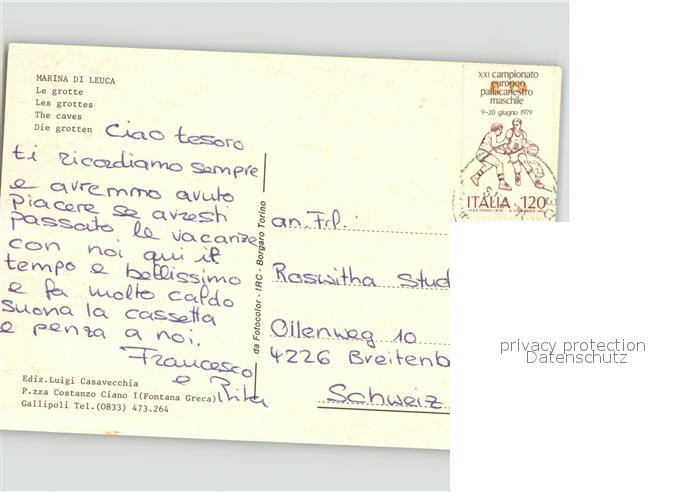 MARINA DI LEUCA
Le grotte
Les grottes
The caves
Die grotten
Ciao tesoro
ti ricordiamo sempre
e avremmo avuto
piacere se avresti
passato le vacanze
con noi qui il
tempo e bellissimo
e fa molto caldo
suona la cassetta
e penza a noi.
Francesco
e Rita
Ediz.Luigi Casavecchia
P.zza Costanzo Ciano I(Fontana Greca)
Gallipoli Tel.(0833) 473.264
da Fotocolor - IRC - Borgaro Torino
XXI campionato
europeo
pallacanestro
maschile
9-20 giugno 1979
ITALIA 120
an. Frl.
Roswitha Stud
Ollenweg 10
4226 Breitenb
Schweiz
privacy protection
Datenschutz